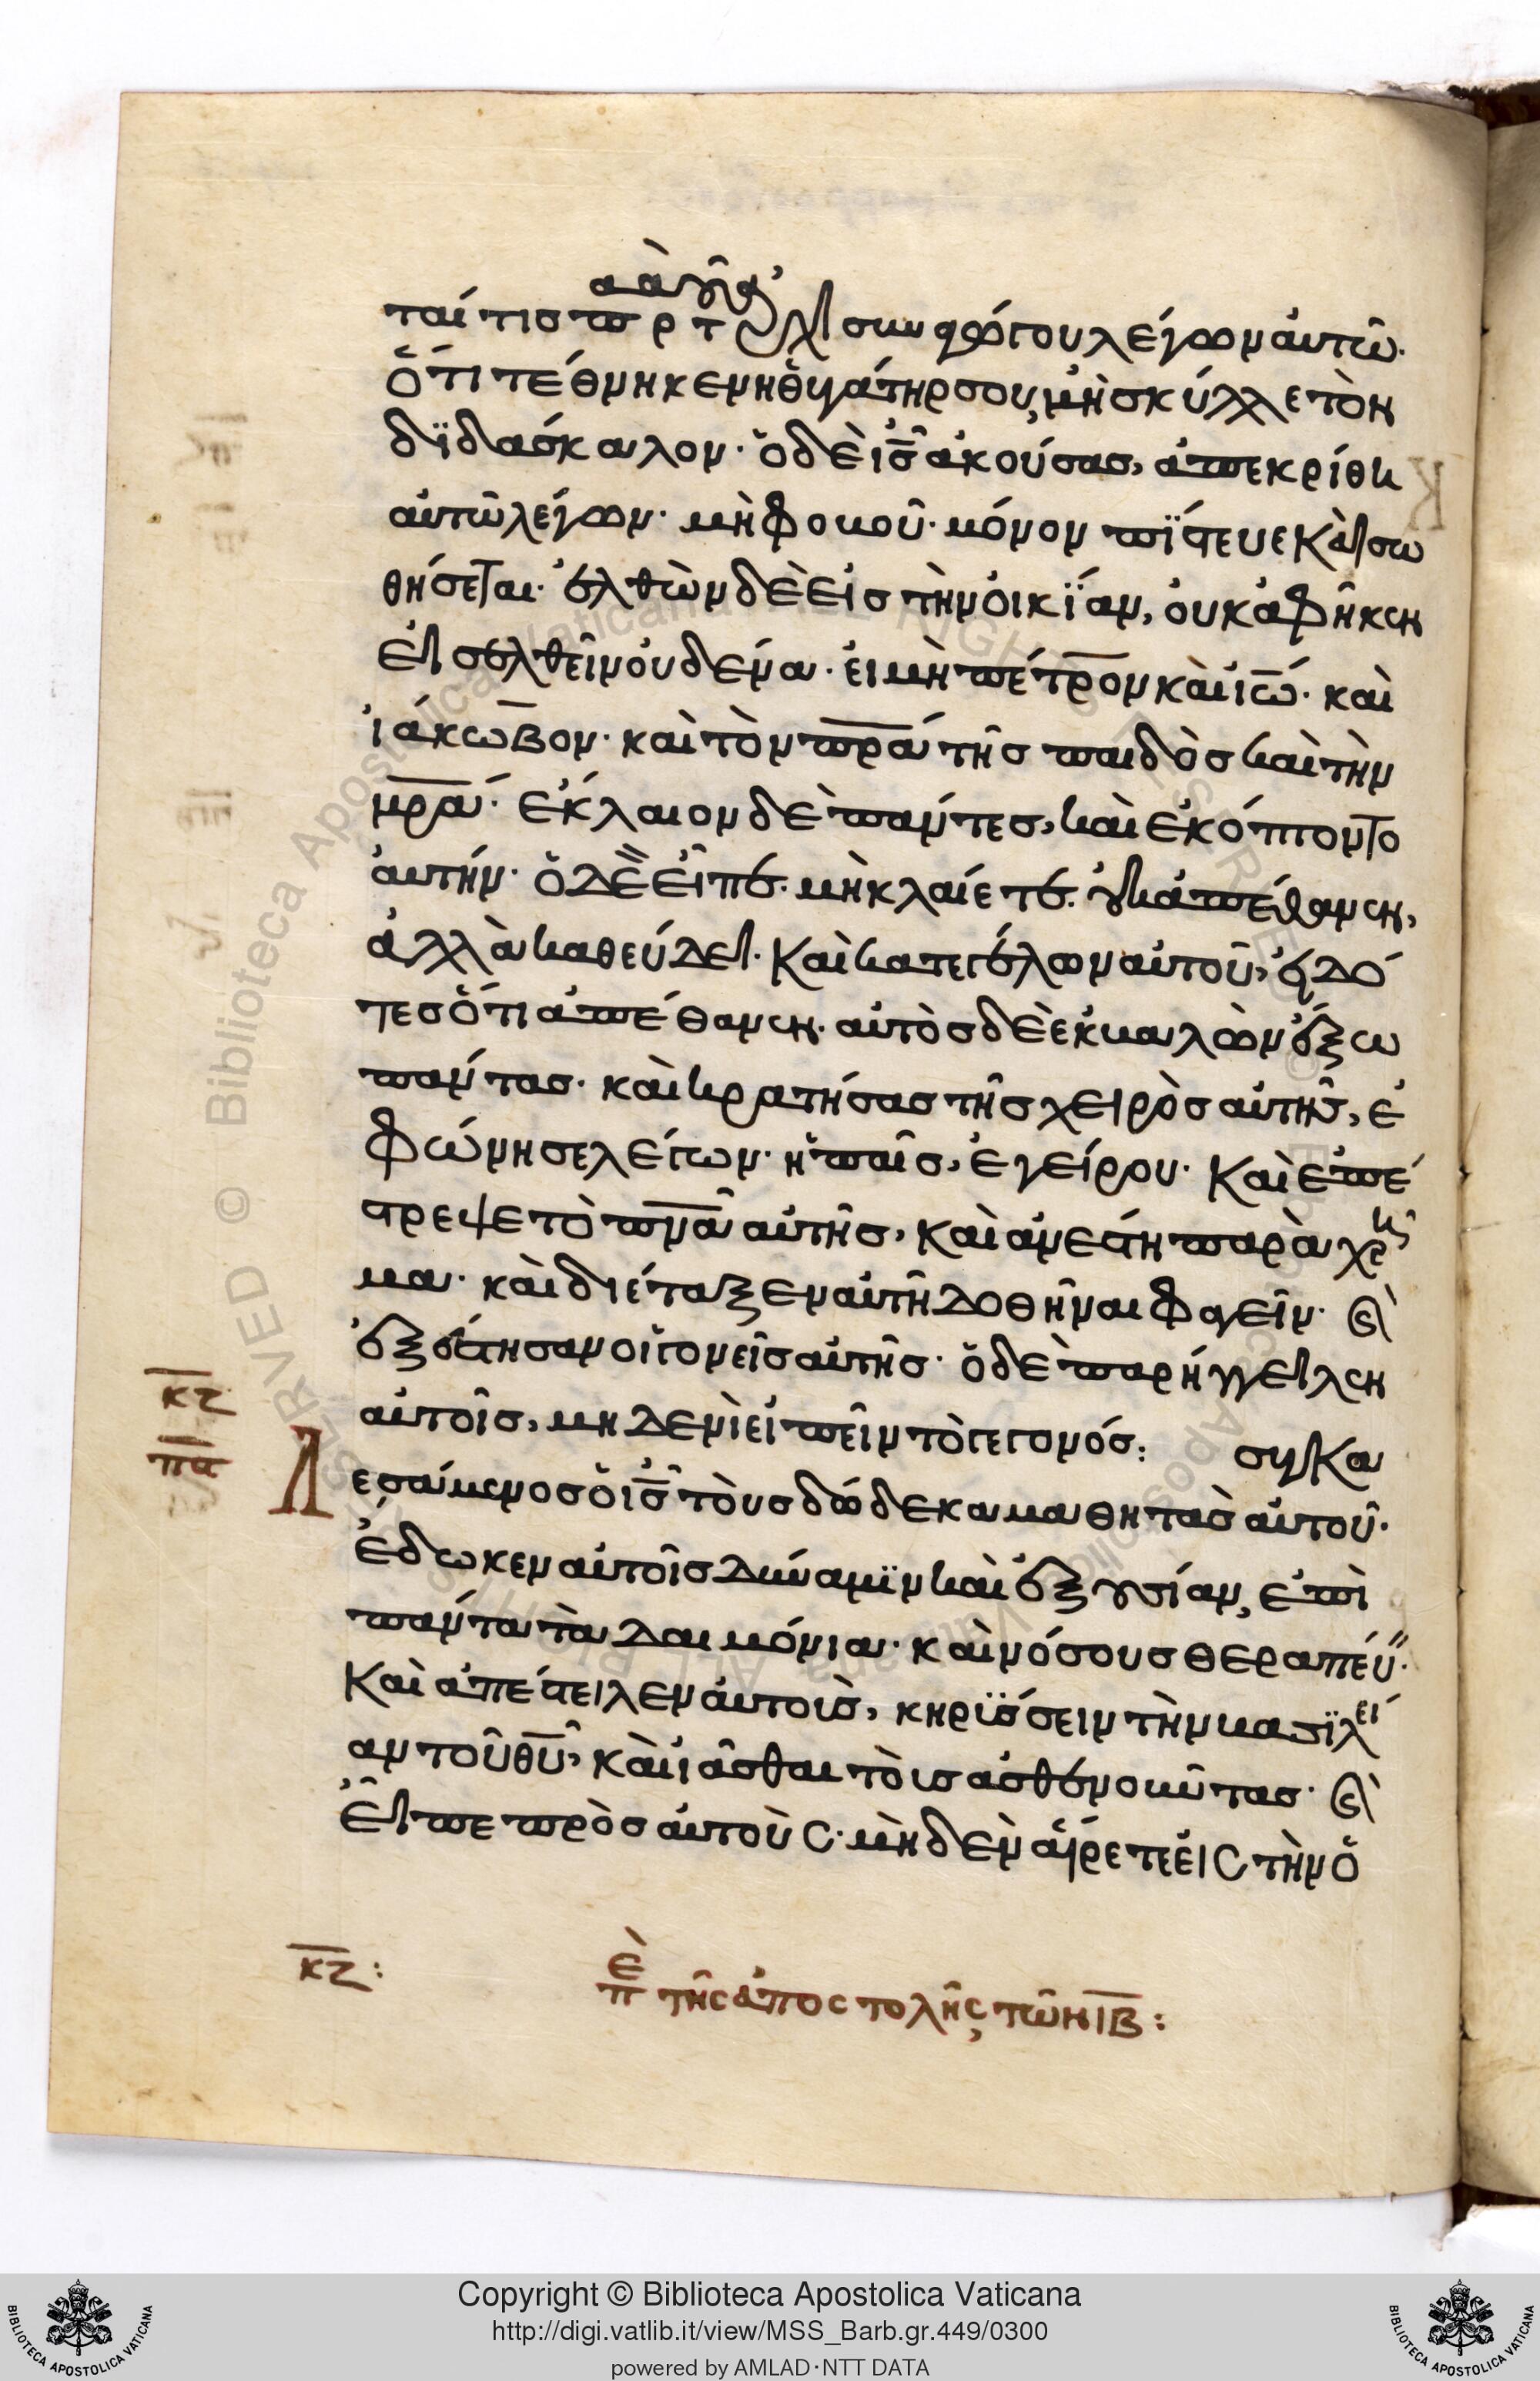 ται τις π ρ τ χι συναγώγου λέγων αὐτῶ·
ὅτι τέθνηκεν ἡ θυγάτηρ σου, μὴ σκύλλε τὸν
δϊδάσκαλον· ὁ δὲ ις̅ ἀκούσας, ἀπεκρίθη
αὐτῶ λέγων· μὴ φοβοῦ· μόνον πϊστευε καὶ σω
θήσεται· ἐλθὼν δὲ εἰς τὴν οἰκϊαν, οὐκ ἀφῆκεν
εἰσελθεῖν οὐδένα· εἰ μὴ πέτρον καὶ ιω̅· καὶ
ἰάκωβον· καὶ τὸν πρα̅ τῆς παιδὸς καὶ τὴν
μρα̅· ἔκλαιον δὲ πάντες, καὶ ἐκόπτοντο
αὐτήν· ὁ δὲ εἶπε· μὴ κλαίετε· οὐκ ἀπέθανεν,
ἀλλὰ καθεύδει· Καὶ κατεγέλων αὐτοῦ, εἰδό
τες ὅτι ἀπέθανεν· αὐτὸς δὲ ἐκβαλὼν ἔξω
πάντας· καὶ κρατήσας τῆς χειρὸς αὐτῆς, ἐ
φώνησε λέγων· ἡ παῖς, ἐγείρου· Καὶ ἐπέ
στρεψε τὸ πνα̅ αὐτῆς, καὶ ἀνέστη παρὰ χρῆ
μα· καὶ διέταξεν αὐτῆ δοθῆναι φαγεῖν· καὶ
ἐξέστησαν οἱ γονεῖς αὐτῆς· ὁ δὲ παρήγγειλεν
αὐτοῖς, μηδενὶ εἰπεῖν τὸ γεγονός: συγκα
κζ
πα
Λεσάμενος ὁ ις̅ τοὺς δώδεκα μαθητὰς αὐτοῦ·
ἔδωκεν αὐτοῖς δύναμϊν καὶ ἐξουσίαν, ἐπὶ
πάντα τὰ δαιμόνια· καὶ νόσους θεραπεύ·
Καὶ ἀπέστειλεν αὐτοὺς, κηρϋσσειν τὴν βασϊλεί
αν τοῦ θυ̅, καὶ ἰᾶσθαι τοὺς ἀσθενοῦντας· καὶ
εἶπε πρὸς αὐτοὺς· μηδὲν αἴρετε εἰς τὴν ὁ
κζ: πε τῆς ἀποστολῆς τῶν ιβ̅:
Copyright © Biblioteca Apostolica Vaticana
http://digi.vatlib.it/view/MSS_Barb.gr.449/0300
powered by AMLAD·NTT DATA
BIBLIOTECA APOSTOLICA VATICANA
BIBLIOTECA APOSTOLICA VATICANA